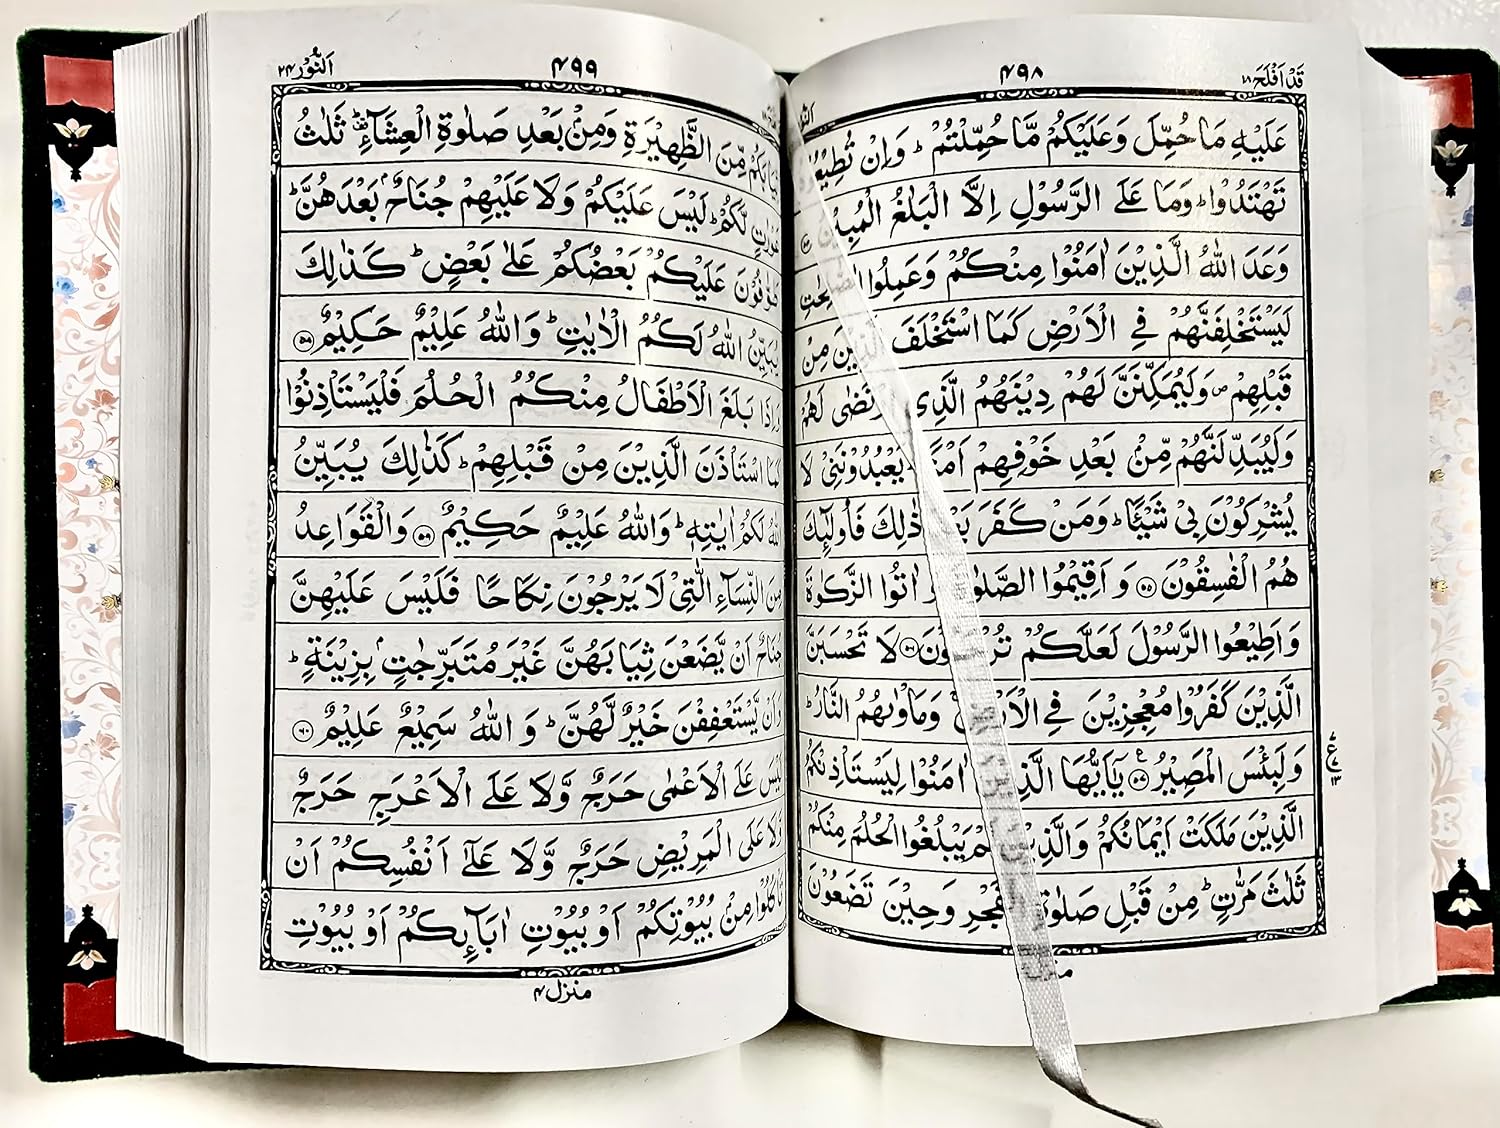 قَدْ اَفْلَحَ ١٨
۴۹۸
عَلَيْهِ مَا حُمِّلَ وَعَلَيْكُمْ مَّا حُمِّلْتُمْ ؕ وَاِنْ تُطِيْعُوْهُ
تَهْتَدُوْا ؕ وَمَا عَلَى الرَّسُوْلِ اِلَّا الْبَلٰغُ الْمُبِيْنُ
وَعَدَ اللّٰهُ الَّذِيْنَ اٰمَنُوْا مِنْكُمْ وَعَمِلُوا الصّٰلِحٰتِ
لَيَسْتَخْلِفَنَّهُمْ فِي الْاَرْضِ كَمَا اسْتَخْلَفَ الَّذِيْنَ مِنْ
قَبْلِهِمْ ۪ وَلَيُمَكِّنَنَّ لَهُمْ دِيْنَهُمُ الَّذِي ارْتَضٰى لَهُمْ
وَلَيُبَدِّلَنَّهُمْ مِّنْۢ بَعْدِ خَوْفِهِمْ اَمْنًا ؕ يَعْبُدُوْنَنِيْ لَا
يُشْرِكُوْنَ بِيْ شَيْئًا ؕ وَمَنْ كَفَرَ بَعْدَ ذٰلِكَ فَاُولٰٓئِكَ
هُمُ الْفٰسِقُوْنَ ۵۵ وَاَقِيْمُوا الصَّلٰوةَ وَاٰتُوا الزَّكٰوةَ
وَاَطِيْعُوا الرَّسُوْلَ لَعَلَّكُمْ تُرْحَمُوْنَ ۵۶ لَا تَحْسَبَنَّ
الَّذِيْنَ كَفَرُوْا مُعْجِزِيْنَ فِي الْاَرْضِ ۚ وَمَاْوٰىهُمُ النَّارُ ؕ
وَلَبِئْسَ الْمَصِيْرُ ۵۷ يٰٓاَيُّهَا الَّذِيْنَ اٰمَنُوْا لِيَسْتَاْذِنْكُمُ
الَّذِيْنَ مَلَكَتْ اَيْمَانُكُمْ وَالَّذِيْنَ لَمْ يَبْلُغُوا الْحُلُمَ مِنْكُمْ
ثَلٰثَ مَرّٰتٍ ؕ مِنْ قَبْلِ صَلٰوةِ الْفَجْرِ وَحِيْنَ تَضَعُوْنَ
اَلنُّوْر ٢۴
۴۹۹
ثِيَابَكُمْ مِّنَ الظَّهِيْرَةِ وَمِنْۢ بَعْدِ صَلٰوةِ الْعِشَآءِ ؕ ثَلٰثُ
عَوْرٰتٍ لَّكُمْ ؕ لَيْسَ عَلَيْكُمْ وَلَا عَلَيْهِمْ جُنَاحٌۢ بَعْدَهُنَّ ؕ
طَوّٰفُوْنَ عَلَيْكُمْ بَعْضُكُمْ عَلٰى بَعْضٍ ؕ كَذٰلِكَ
يُبَيِّنُ اللّٰهُ لَكُمُ الْاٰيٰتِ ؕ وَاللّٰهُ عَلِيْمٌ حَكِيْمٌ ۵۸
وَاِذَا بَلَغَ الْاَطْفَالُ مِنْكُمُ الْحُلُمَ فَلْيَسْتَاْذِنُوْا
كَمَا اسْتَاْذَنَ الَّذِيْنَ مِنْ قَبْلِهِمْ ؕ كَذٰلِكَ يُبَيِّنُ
اللّٰهُ لَكُمْ اٰيٰتِهٖ ؕ وَاللّٰهُ عَلِيْمٌ حَكِيْمٌ ۵۹ وَالْقَوَاعِدُ
مِنَ النِّسَآءِ الّٰتِيْ لَا يَرْجُوْنَ نِكَاحًا فَلَيْسَ عَلَيْهِنَّ
جُنَاحٌ اَنْ يَّضَعْنَ ثِيَابَهُنَّ غَيْرَ مُتَبَرِّجٰتٍۭ بِزِيْنَةٍ ؕ
وَاَنْ يَّسْتَعْفِفْنَ خَيْرٌ لَّهُنَّ ؕ وَاللّٰهُ سَمِيْعٌ عَلِيْمٌ ۶۰
لَيْسَ عَلَى الْاَعْمٰى حَرَجٌ وَّلَا عَلَى الْاَعْرَجِ حَرَجٌ
وَّلَا عَلَى الْمَرِيْضِ حَرَجٌ وَّلَا عَلٰٓى اَنْفُسِكُمْ اَنْ
تَاْكُلُوْا مِنْۢ بُيُوْتِكُمْ اَوْ بُيُوْتِ اٰبَآئِكُمْ اَوْ بُيُوْتِ
منزل ۴